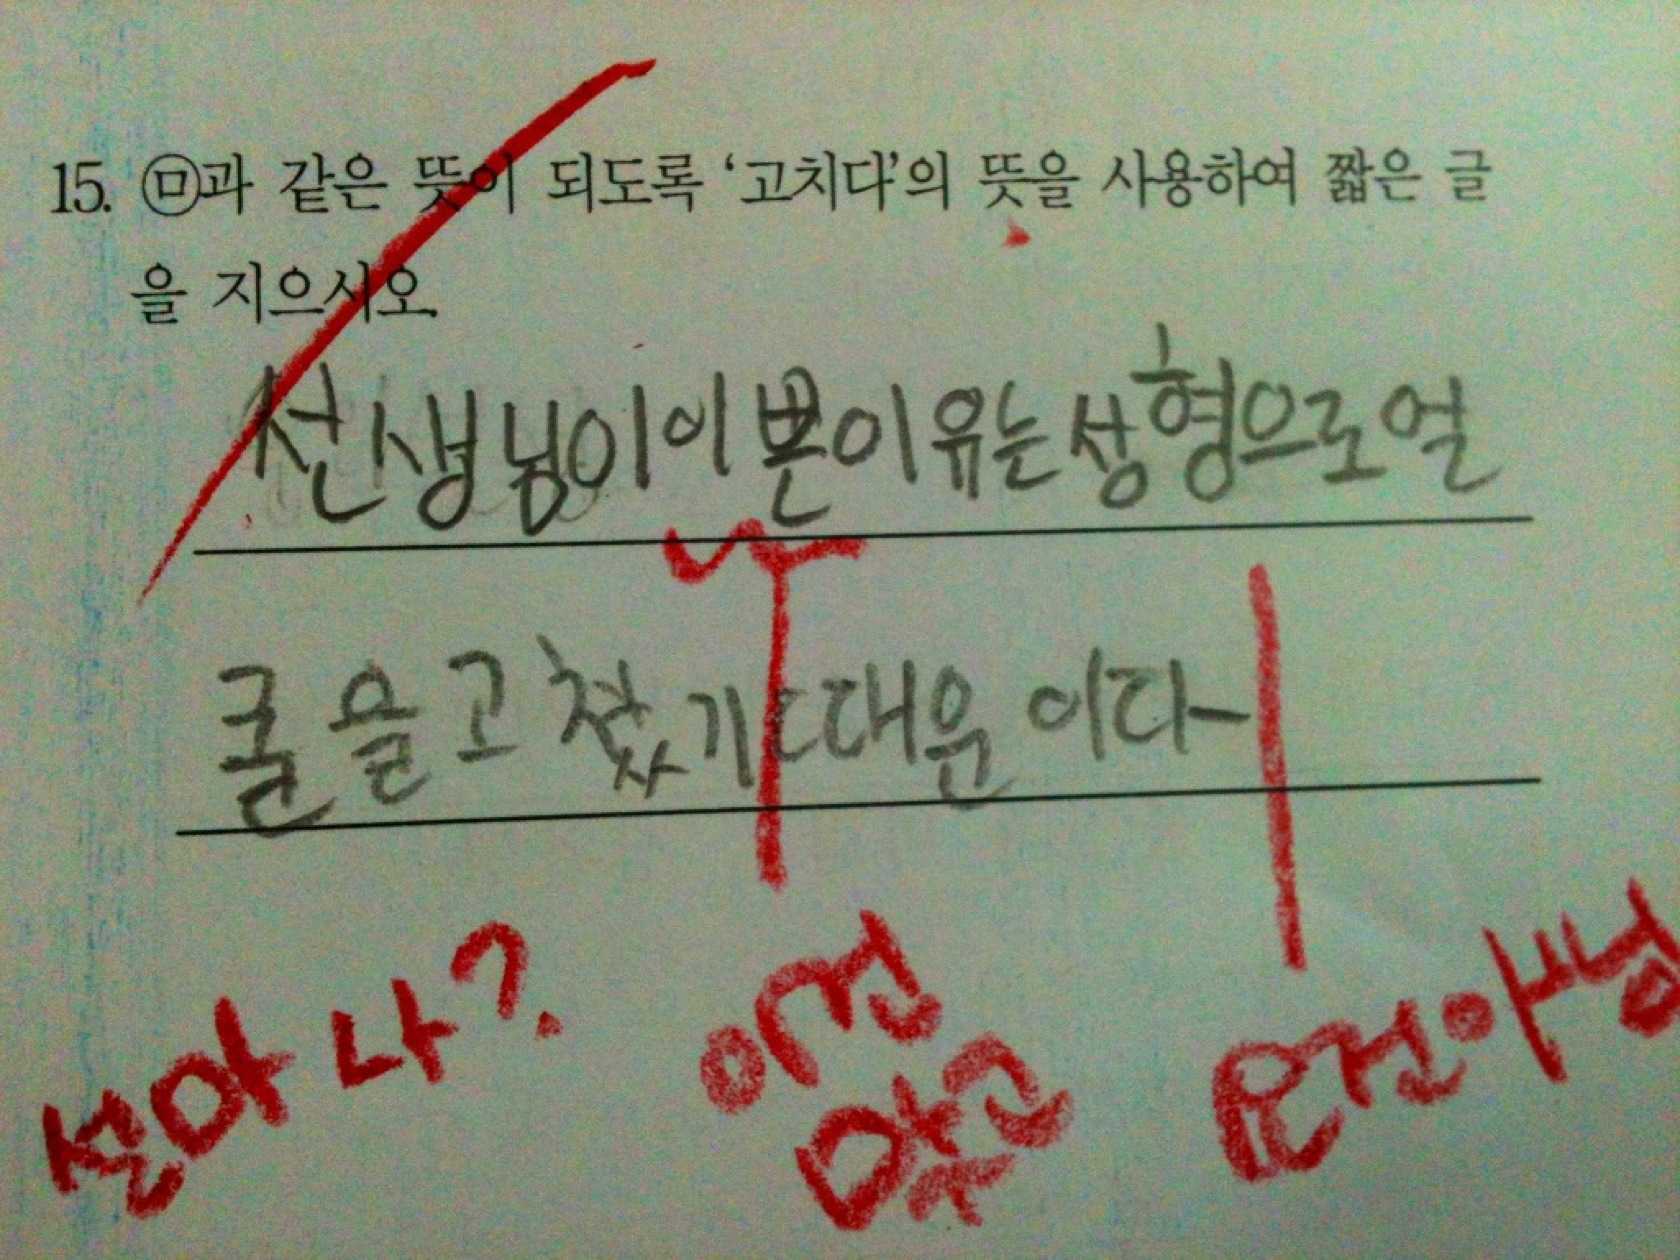 15. ㉤과 같은 뜻이 되도록 ‘고치다’의 뜻을 사용하여 짧은 글
을 지으시오.
선생님이 이쁜이유는 성형으로 얼
굴을 고쳤기 때문이다
설마 나?
이건
맞고
요건 아님